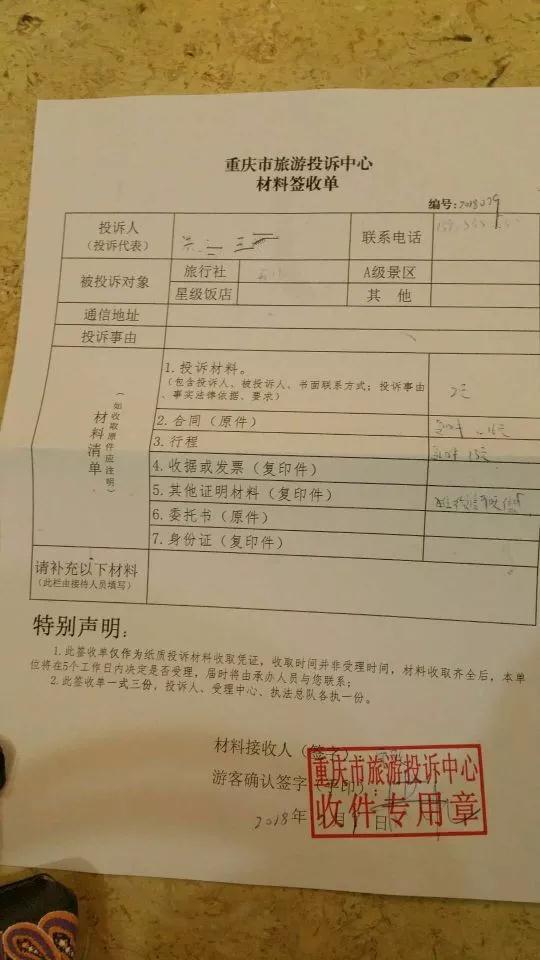 重庆市旅游投诉中心
材料签收单
编号:2018079
投诉人
(投诉代表)
联系电话
被投诉对象
旅行社
A级景区
星级饭店
其 他
通信地址
投诉事由
材料清单
(如收取原件应注明)
1.投诉材料。
(包含投诉人、被投诉人、书面联系方式;投诉事由
、事实法律依据、要求)
2.合同(原件)
3.行程
4.收据或发票(复印件)
5.其他证明材料(复印件)
6.委托书(原件)
7.身份证(复印件)
请补充以下材料
(此栏由接待人员填写)
特别声明:
1.此签收单仅作为纸质投诉材料收取凭证,收取时间并非受理时间,材料收取齐全后,本单
位将在5个工作日内决定是否受理,届时将由承办人员与您联系;
2.此签收单一式三份,投诉人、受理中心、执法总队各执一份。
材料接收人(签字)
游客确认签字(手印):
2018年 月 日
重庆市旅游投诉中心
收件专用章